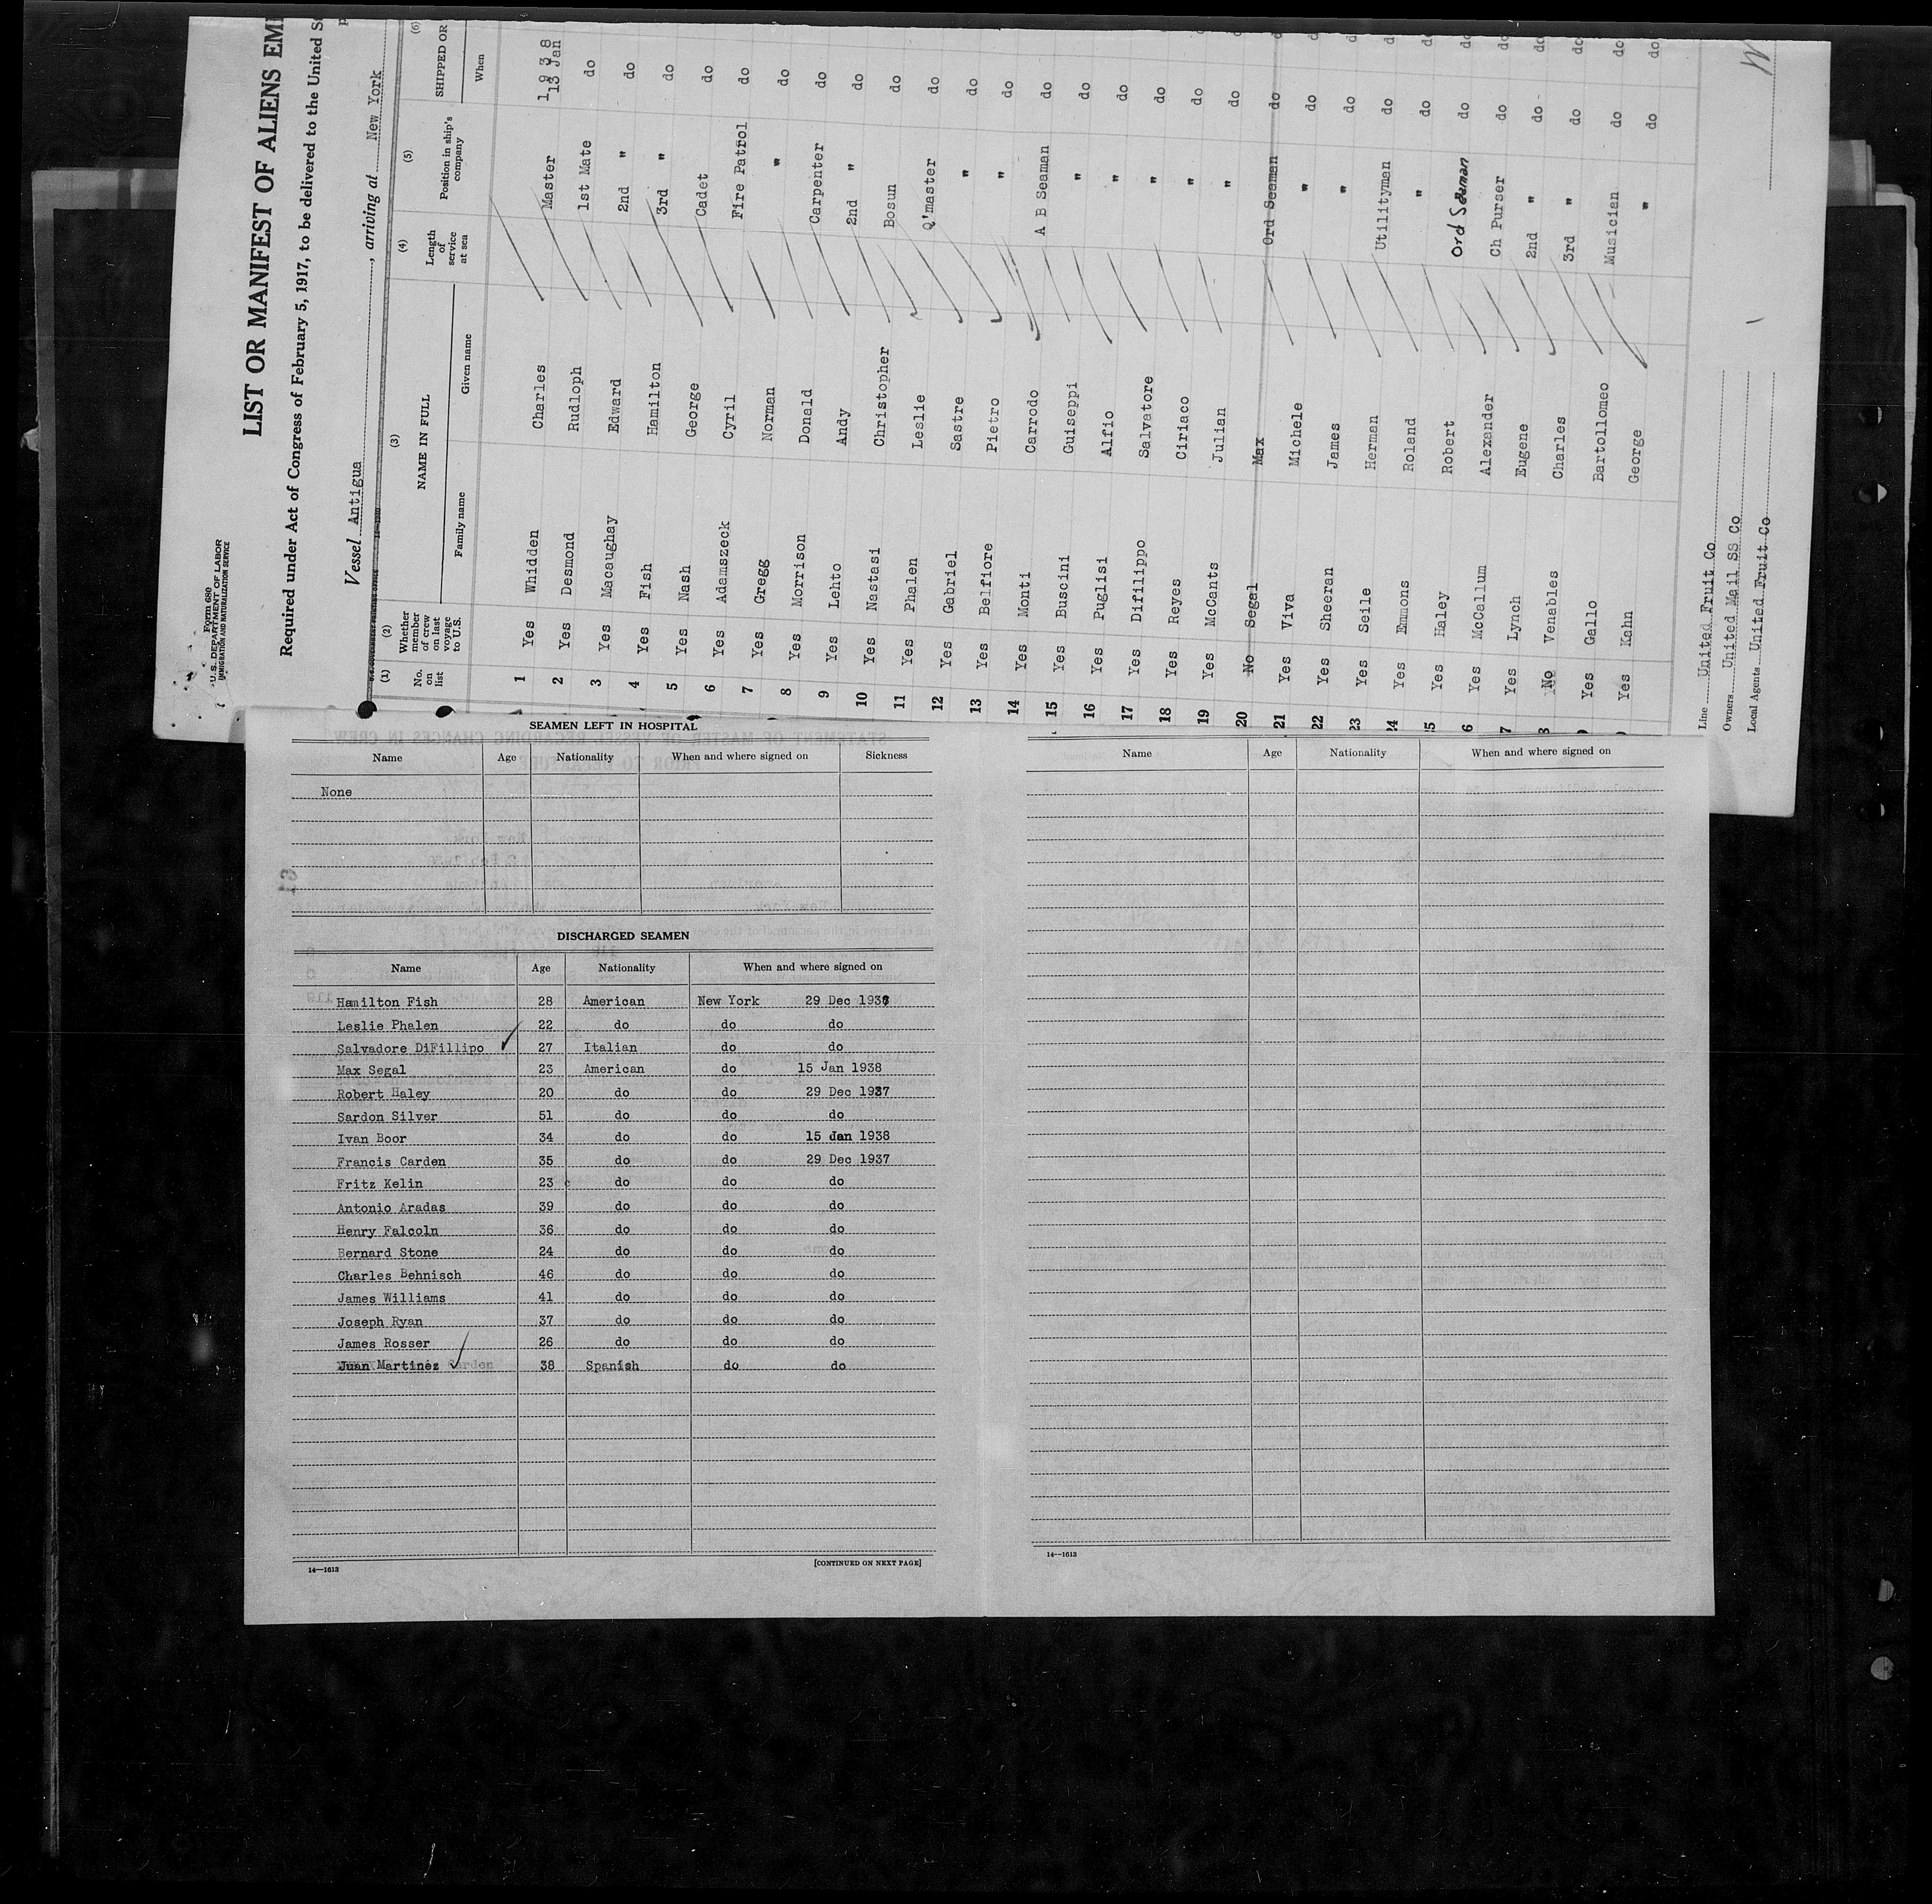 Form 680
U. S. DEPARTMENT OF LABOR
IMMIGRATION AND NATURALIZATION SERVICE
LIST OR MANIFEST OF ALIENS EM
Required under Act of Congress of February 5, 1917, to be delivered to the United S
Vessel Antigua, arriving at New York
(1) (2) (3) (4) (5) (6)
No. on list Whether member of crew on last voyage to U.S. NAME IN FULL Length of service at sea Position in ship's company SHIPPED OR
Family name Given name When
1938
1 Yes Whidden Charles Master 13 Jan
2 Yes Desmond Rudloph 1st Mate do
3 Yes Macaughay Edward 2nd " do
4 Yes Fish Hamilton 3rd " do
5 Yes Nash George Cadet do
6 Yes Adamszeck Cyril Fire Patrol do
7 Yes Gregg Norman " do
8 Yes Morrison Donald Carpenter do
9 Yes Lehto Andy 2nd " do
10 Yes Nastasi Christopher Bosun do
11 Yes Phalen Leslie Q'master do
12 Yes Gabriel Sastre " do
13 Yes Belfiore Pietro " do
14 Yes Monti Carrodo A B Seaman do
15 Yes Buscini Guiseppi " do
16 Yes Puglisi Alfio " do
17 Yes Difilippo Salvatore " do
18 Yes Reyes Ciriaco " do
19 Yes McCants Julian " do
20 No Segal Max Ord Seaman do
21 Yes Viva Michele " do
22 Yes Sheeran James " do
23 Yes Seile Herman Utilityman do
24 Yes Emmons Roland " do
25 Yes Haley Robert Ord Seaman do
6 Yes McCallum Alexander Ch Purser do
7 Yes Lynch Eugene 2nd " do
8 No Venables Charles 3rd " do
Yes Gallo Bartollomeo Musician do
Yes Kahn George " do
Line United Fruit Co
Owners United Mail SS Co
Local Agents United Fruit Co
SEAMEN LEFT IN HOSPITAL
Name Age Nationality When and where signed on Sickness
None
DISCHARGED SEAMEN
Name Age Nationality When and where signed on
Hamilton Fish 28 American New York 29 Dec 1937
Leslie Phalen 22 do do do
Salvadore DiFillipo 27 Italian do do
Max Segal 23 American do 15 Jan 1938
Robert Haley 20 do do 29 Dec 1937
Sardon Silver 51 do do do
Ivan Boor 34 do do 15 Jan 1938
Francis Carden 35 do do 29 Dec 1937
Fritz Kelin 23 do do do
Antonio Aradas 39 do do do
Henry Falcoln 36 do do do
Bernard Stone 24 do do do
Charles Behnisch 46 do do do
James Williams 41 do do do
Joseph Ryan 37 do do do
James Rosser 26 do do do
Juan Martinez 38 Spanish do do
14—1613 [CONTINUED ON NEXT PAGE]
Name Age Nationality When and where signed on
14—1613